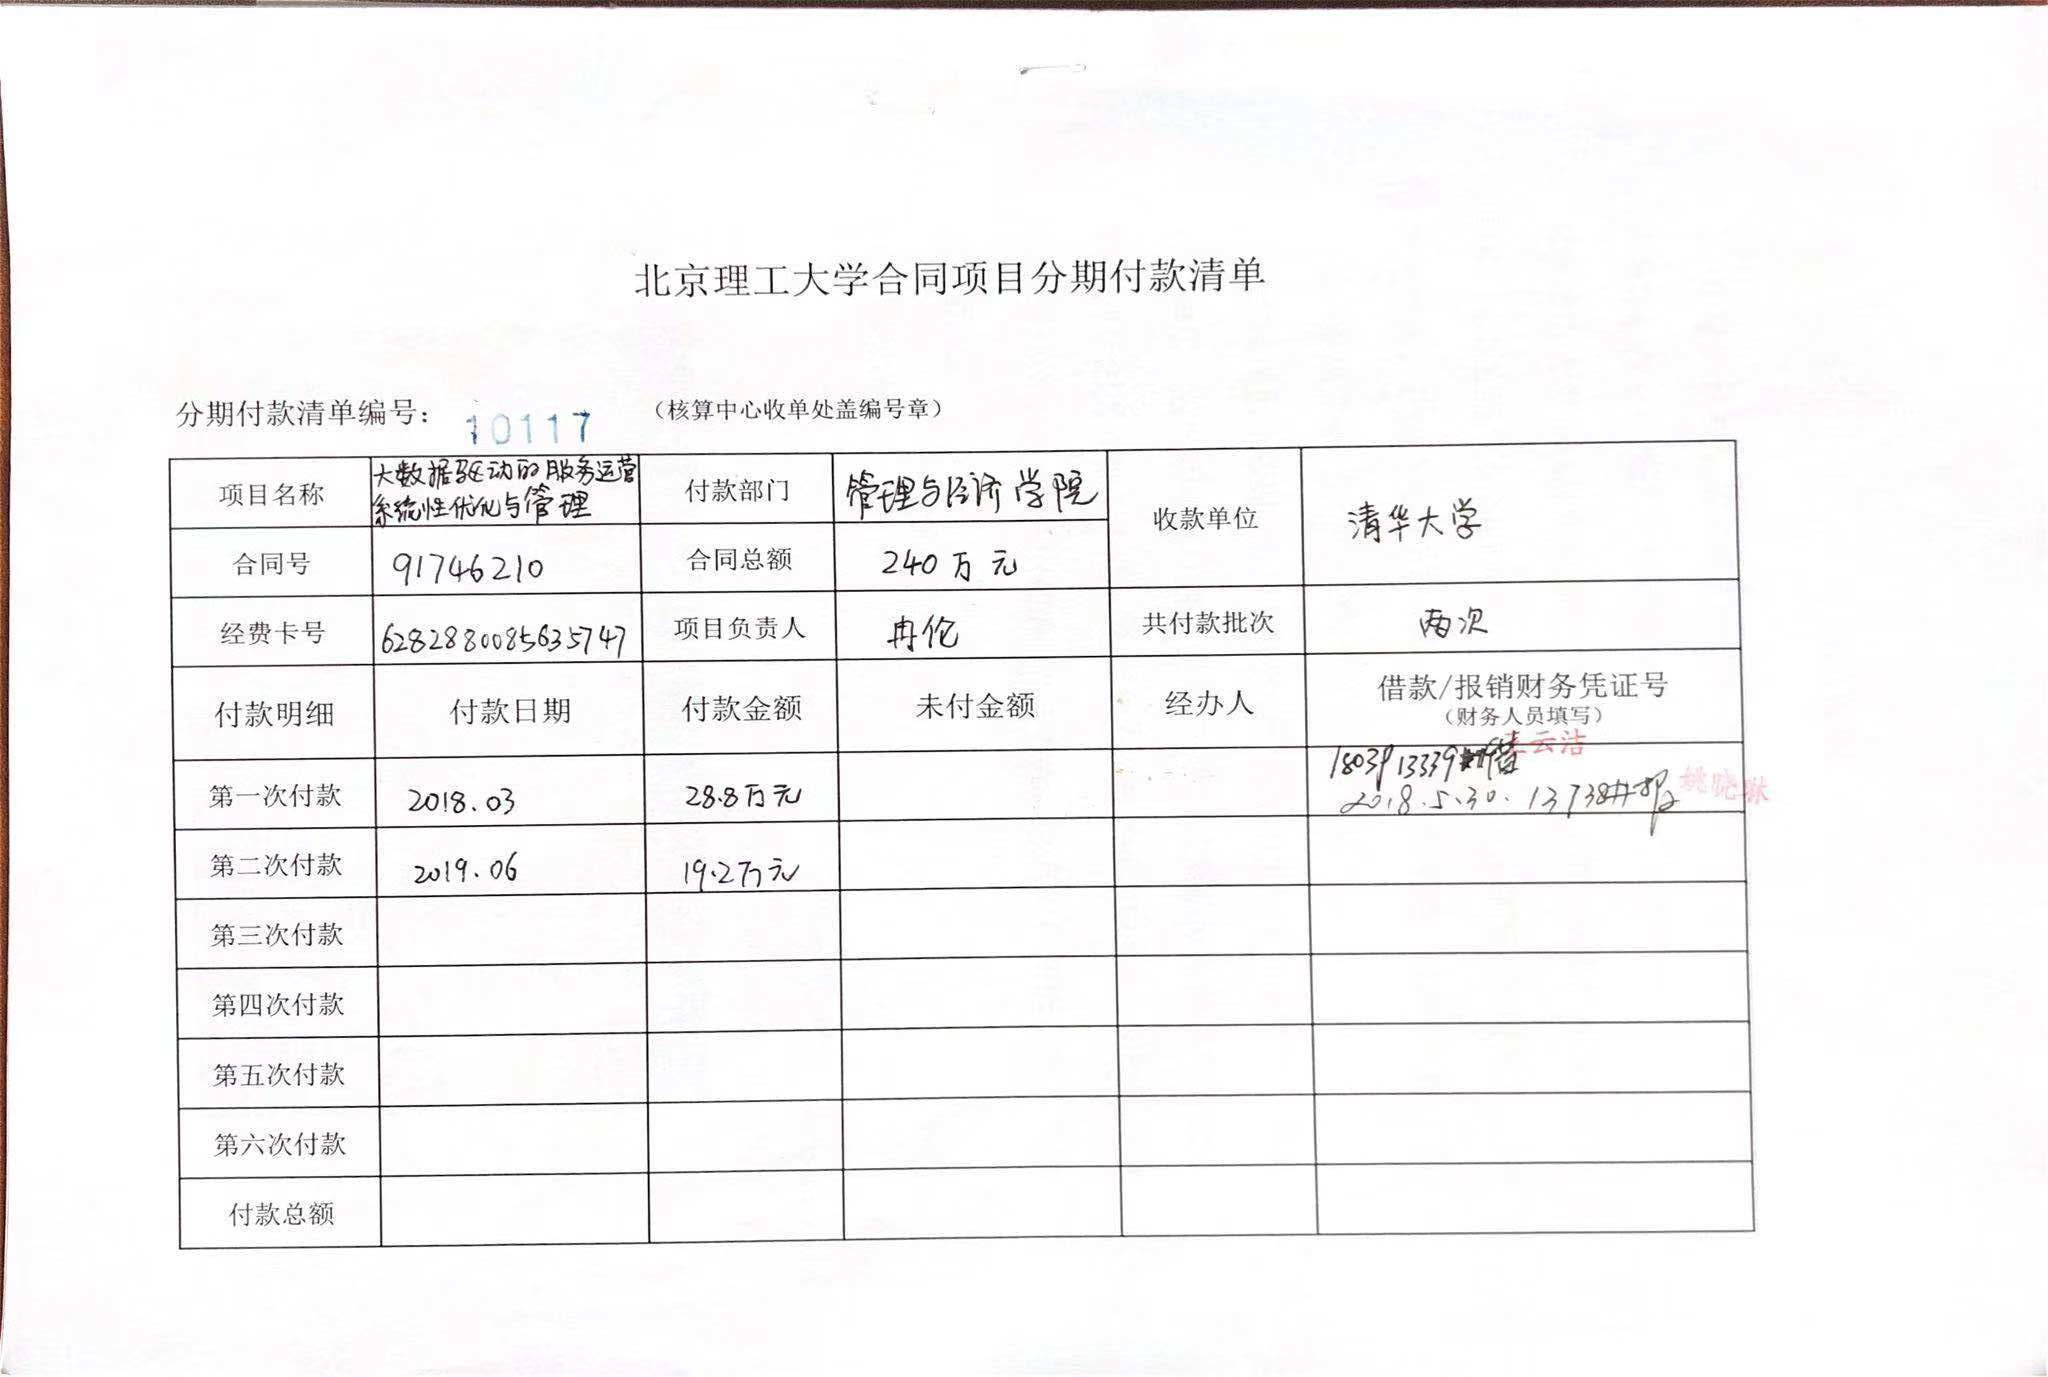 北京理工大学合同项目分期付款清单
分期付款清单编号： 10117 （核算中心收单处盖编号章）
项目名称 大数据驱动的服务运营
系统性优化与管理
付款部门 管理与经济学院
收款单位 清华大学
合同号 91746210 合同总额 240万元
经费卡号 6282880085635747 项目负责人 冉伦 共付款批次 两次
付款明细 付款日期 付款金额 未付金额 经办人 借款/报销财务凭证号
（财务人员填写）
云洁
第一次付款 2018.03 28.8万元 1803P13339 借
2018.5.30. 13738#报 姚晓琳
第二次付款 2019.06 19.2万元
第三次付款
第四次付款
第五次付款
第六次付款
付款总额